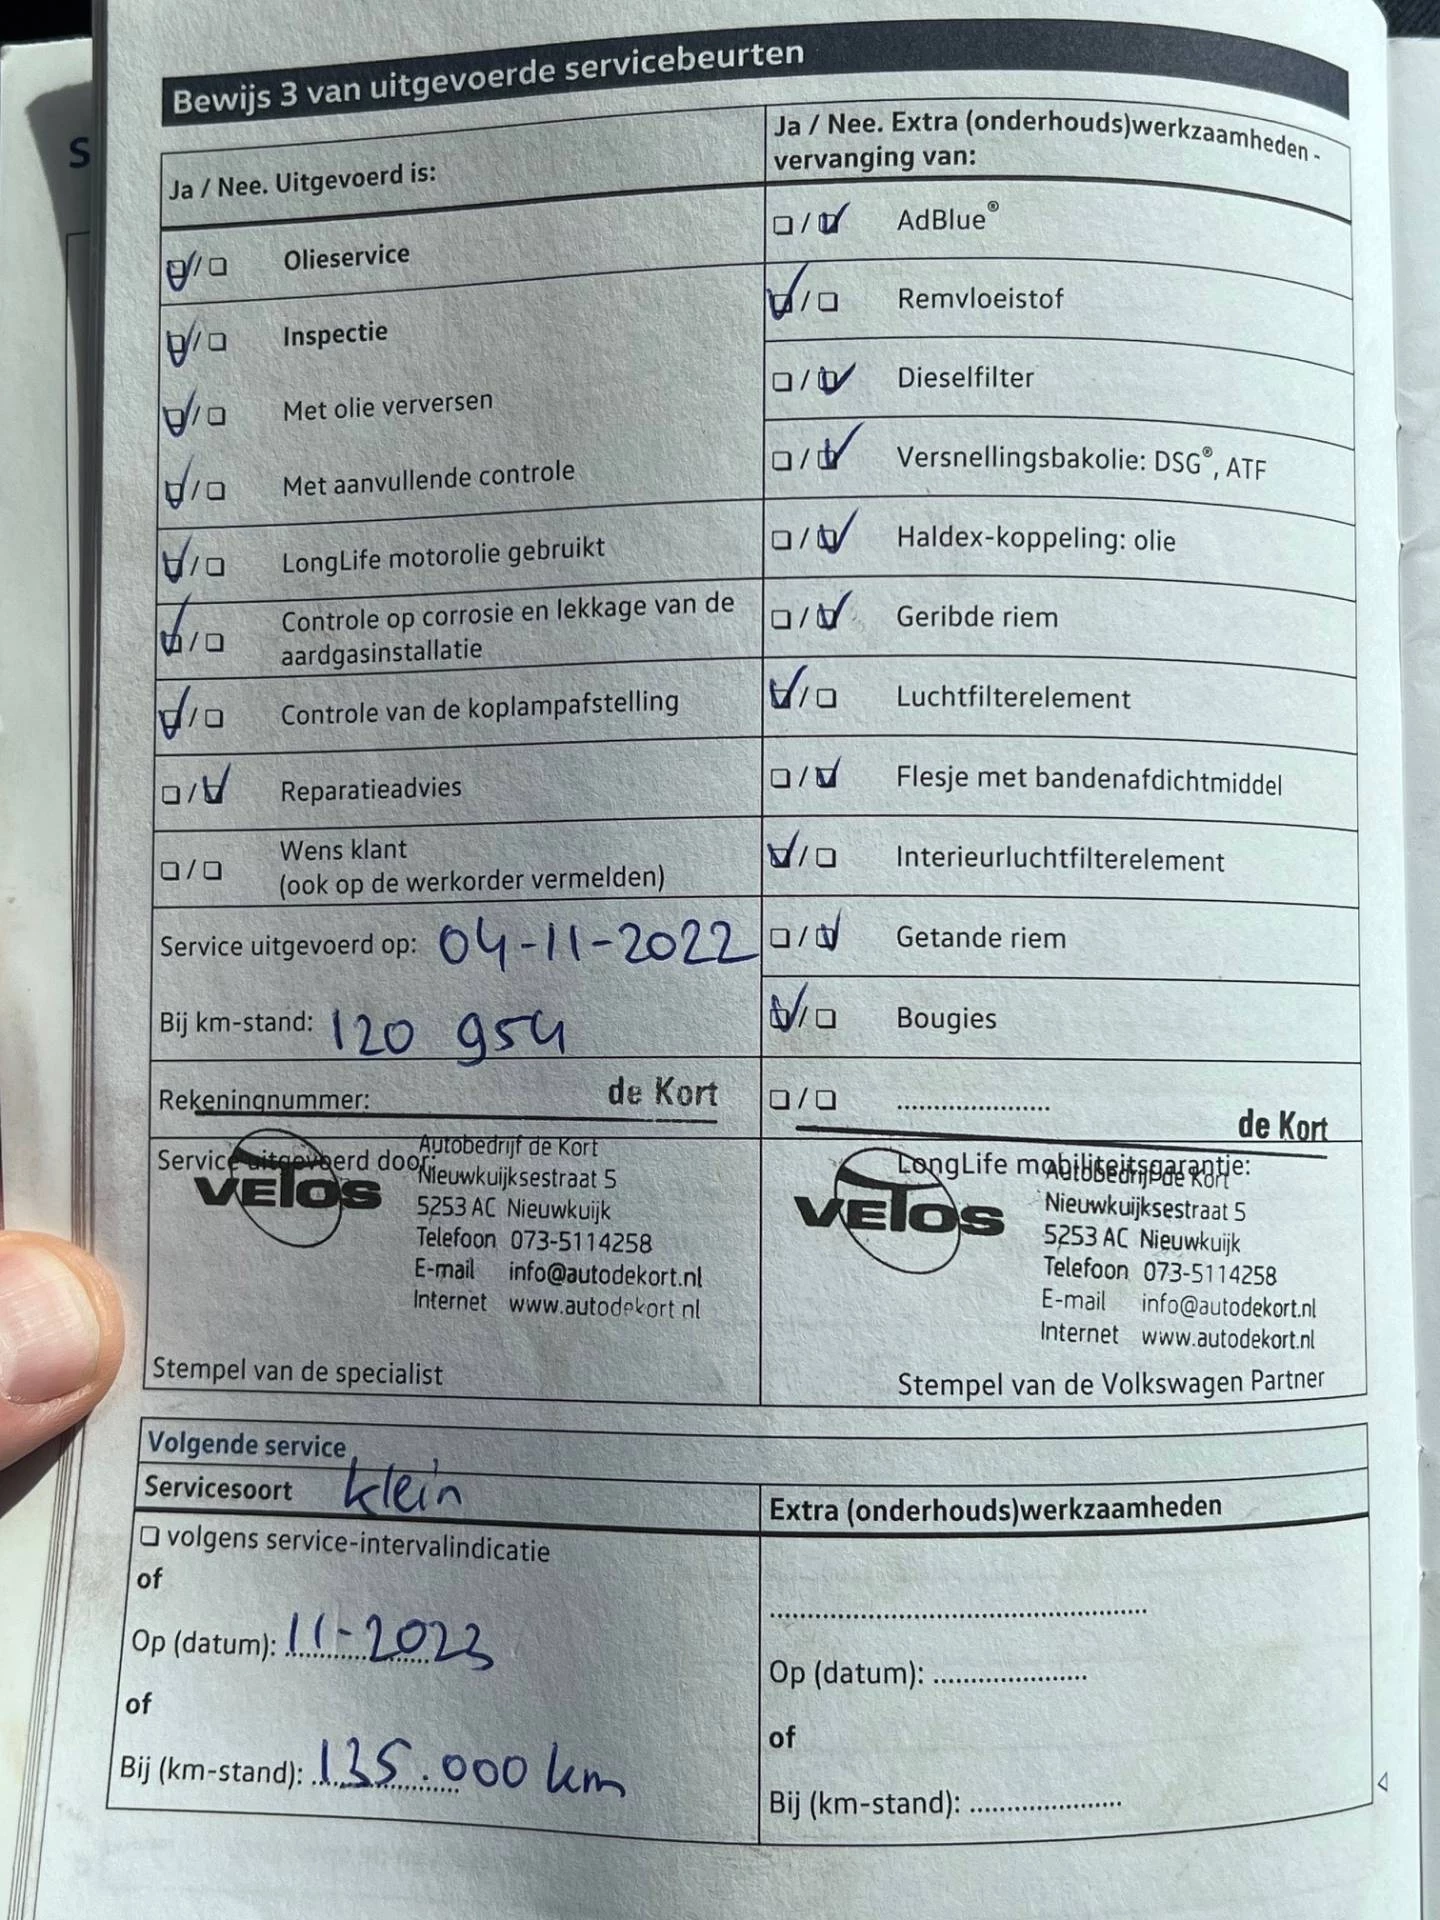 Bewijs 3 van uitgevoerde servicebeurten
Ja / Nee. Uitgevoerd is:
Olieservice
Inspectie
Met olie verversen
Met aanvullende controle
LongLife motorolie gebruikt
Controle op corrosie en lekkage van de
aardgasinstallatie
Controle van de koplampafstelling
Reparatieadvies
Wens klant
(ook op de werkorder vermelden)
Service uitgevoerd op: 04-11-2022
Bij km-stand: 120 954
Rekeningnummer:
de Kort
Service uitgevoerd door:
VETOS
Autobedrijf de Kort
Nieuwkuijksestraat 5
5253 AC Nieuwkuijk
Telefoon 073-5114258
E-mail info@autodekort.nl
Internet www.autodekort.nl
Stempel van de specialist
Ja / Nee. Extra (onderhouds)werkzaamheden -
vervanging van:
AdBlue®
Remvloeistof
Dieselfilter
Versnellingsbakolie: DSG®, ATF
Haldex-koppeling: olie
Geribde riem
Luchtfilterelement
Flesje met bandenafdichtmiddel
Interieurluchtfilterelement
Getande riem
Bougies
......................
de Kort
LongLife mobiliteitsgarantie:
VETOS
Autobedrijf de Kort
Nieuwkuijksestraat 5
5253 AC Nieuwkuijk
Telefoon 073-5114258
E-mail info@autodekort.nl
Internet www.autodekort.nl
Stempel van de Volkswagen Partner
Volgende service
Servicesoort klein
volgens service-intervalindicatie
of
Op (datum): 11-2023
of
Bij (km-stand): 135.000 km
Extra (onderhouds)werkzaamheden
......................................................
Op (datum): ......................
of
Bij (km-stand): ......................
S